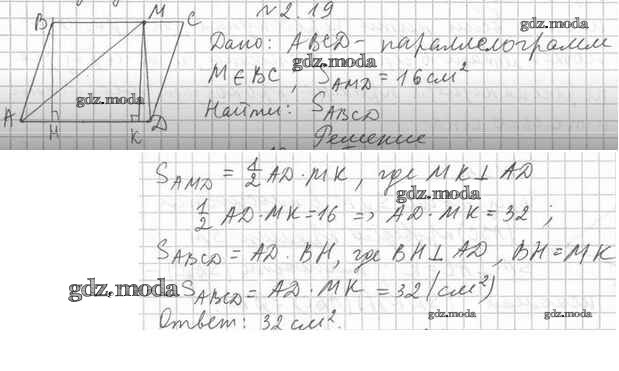 №2.19
B M C
A H K D
Дано: ABCD - параллелограмм
M∈BC, S_AMD = 16 см²
Найти: S_ABCD
Решение
S_AMD = 1/2 AD·MK, где MK ⊥ AD
1/2 AD·MK = 16 => AD·MK = 32;
S_ABCD = AD·BH, где BH ⊥ AD, BH = MK
S_ABCD = AD·MK = 32 (см²)
Ответ: 32 см².
gdz.moda
gdz.moda
gdz.moda
gdz.moda
gdz.moda
gdz.moda
gdz.moda